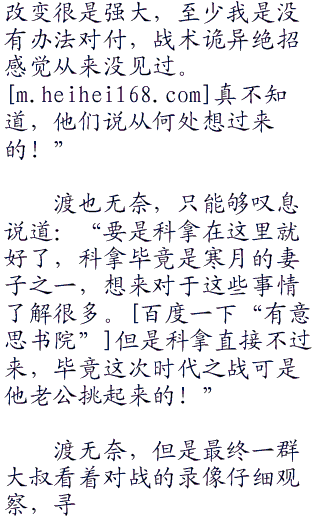 改变很是强大，至少我是没
有办法对付，战术诡异绝招
感觉从来没见过。
[m.heihei168.com]真不知
道，他们说从何处想过来
的！”
　　渡也无奈，只能够叹息
说道：“要是科拿在这里就
好了，科拿毕竟是寒月的妻
子之一，想来对于这些事情
了解很多。[百度一下“有意
思书院”]但是科拿直接不过
来，毕竟这次时代之战可是
他老公挑起来的！”
　　渡无奈，但是最终一群
大叔看着对战的录像仔细观
察，寻